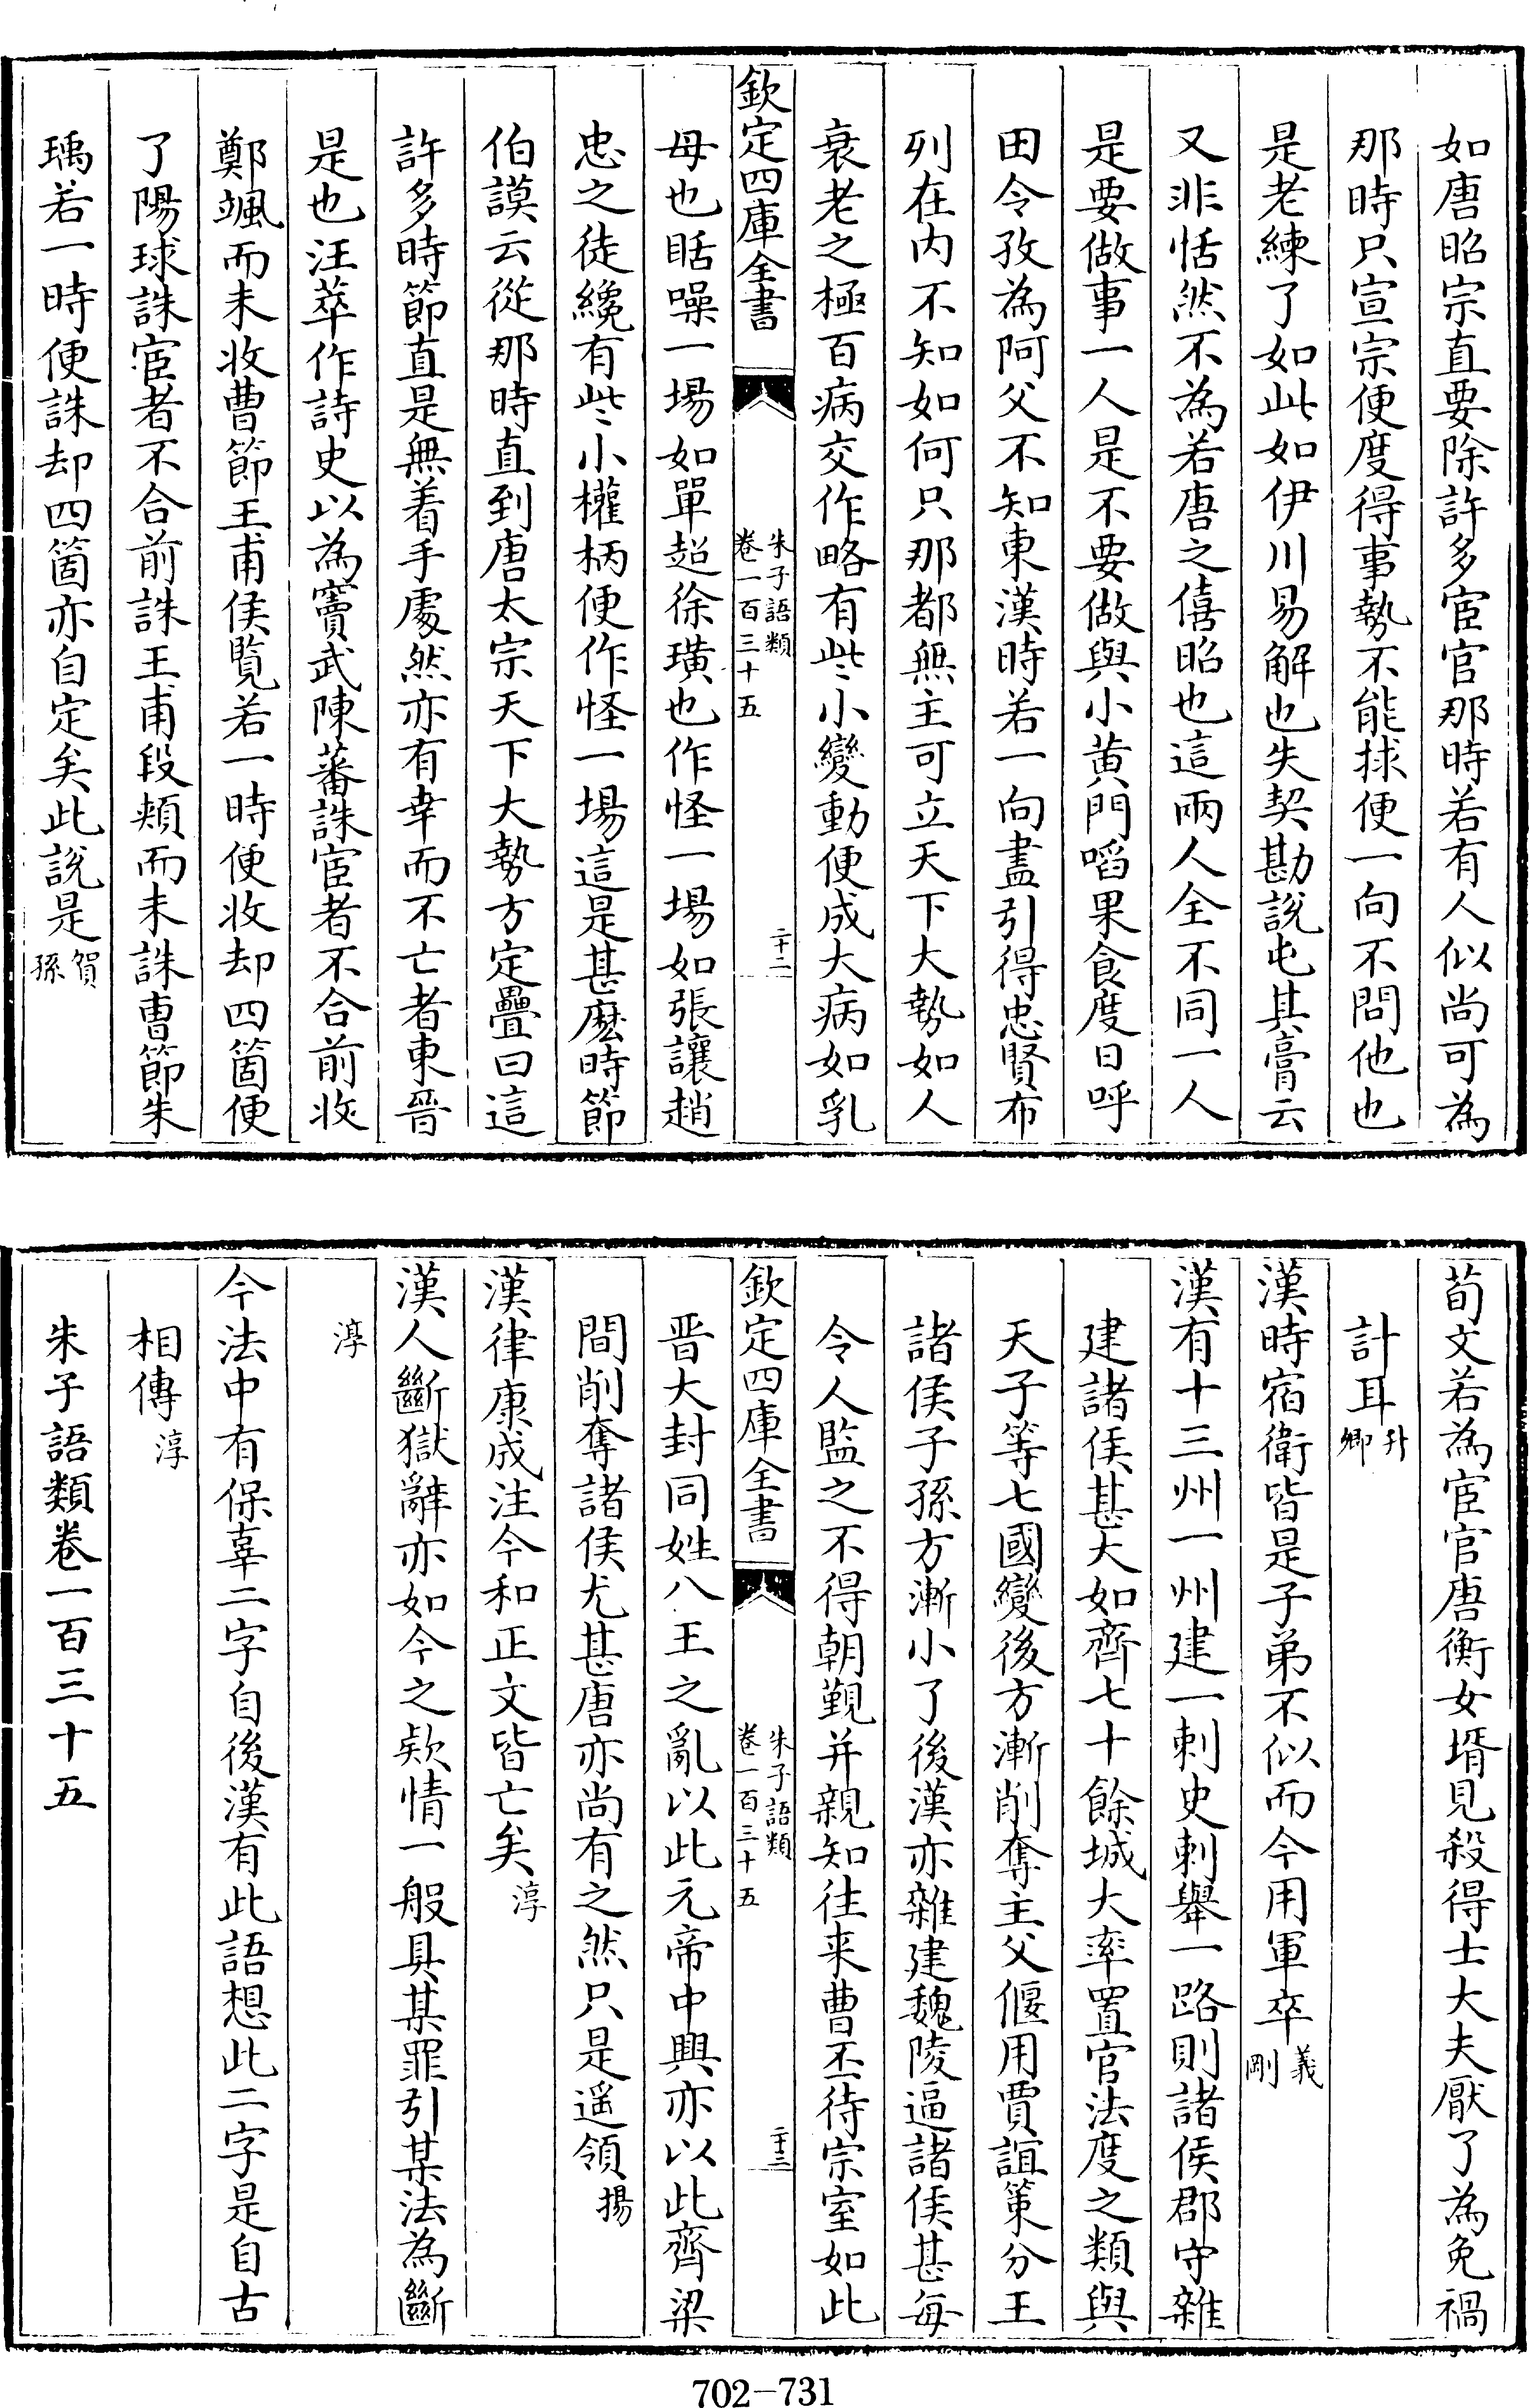 如唐昭宗直要除許多宦官那時若有人似尚可為
那時只宣宗便度得事勢不能捄便一向不問他也
是老練了如此如伊川易解也失契勘說屯其膏云
又非恬然不為若唐之僖昭也這兩人全不同一人
是要做事一人是不要做與小黄門啗果食度日呼
田令孜為阿父不知東漢時若一向盡引得忠賢布
列在内不知如何只那都無主可立天下大勢如人
衰老之極百病交作略有些小變動便成大病如乳
欽定四庫全書 朱子語類 卷一百三十五 二十二
母也聒噪一場如單超徐璜也作怪一場如張讓趙
忠之徒纔有些小權柄便作怪一場這是甚麽時節
伯謨云從那時直到唐太宗天下大勢方定疊曰這
許多時節直是無着手處然亦有幸而不亡者東晉
是也汪萃作詩史以為竇武陳蕃誅宦者不合前收
鄭颯而未收曹節王甫侯覽若一時便收却四箇便
了陽球誅宦者不合前誅王甫段熲而未誅曹節朱
瑀若一時便誅却四箇亦自定矣此說是賀孫
荀文若為宦官唐衡女壻見殺得士大夫厭了為免禍
計耳升卿
漢時宿衛皆是子弟不似而今用軍卒義剛
漢有十三州一州建一刺史刺舉一路則諸侯郡守雜
建諸侯甚大如齊七十餘城大率置官法度之類與
天子等七國變後方漸削奪主父偃用賈誼策分王
諸侯子孫方漸小了後漢亦雜建魏陵逼諸侯甚每
令人監之不得朝覲并親知往來曹丕待宗室如此
欽定四庫全書 朱子語類 卷一百三十五 二十三
晋大封同姓八王之亂以此元帝中興亦以此齊梁
間削奪諸侯尤甚唐亦尚有之然只是遥領揚
漢律康成注今和正文皆亡矣淳
漢人斷獄辭亦如今之欵情一般具某罪引某法為斷
淳
今法中有保辜二字自後漢有此語想此二字是自古
相傳淳
朱子語類卷一百三十五
702-731